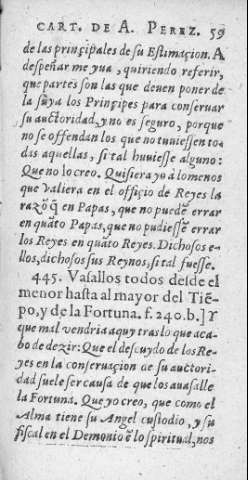 CART. DE A. PEREZ. 59
de las principales de su Estimaçion. A
despeñar me yua, quiriendo referir,
que partes son las que deuen poner de
la suya los Prinçipes para conseruar
su auctoridad, y no es seguro, porque
no se offendan los que no tuuiessen to-
das aquellas, si tal huuiesse alguno:
Que no lo creo. Quisiera yo à lo menos
que valiera en el offiçio de Reyes la
razõ q̃ en Papas, que no puedẽ errar
en quãto Papas, que no pudiessẽ errar
los Reyes en quãto Reyes. Dichosos e-
llos, dichosos sus Reynos, si tal fuesse.
445. Vasallos todos desde el
menor hasta al mayor del Tiẽ-
po, y de la Fortuna. f. 240. b.] Y
que mal vendria aquy tras lo que aca-
bo de dezir: Que el descuydo de los Re-
yes en la conseruaçion de su auctori-
dad suele ser causa de que los auasalle
la Fortuna. Que yo creo, que como el
Alma tiene su Angel custodio, y su
fiscal en el Demonio ẽ lo spiritual, nos